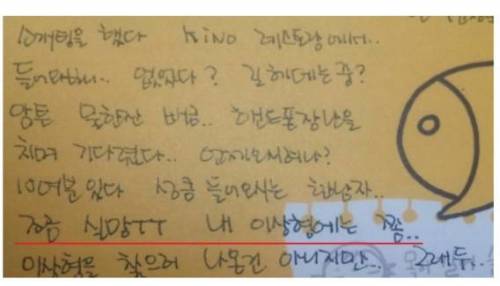 소개팅을 했다 KINO 레스토랑에서..
들어가보니.. 없었다? 길 헤메는중?
암튼 뻘쭘.. 핸드폰장난을
치며 기다렸다.. 언제오시려나?
10여분있다 성큼 들어오시는 한남자..
조금 실망TT 내 이상형에는 쫌..
이상형을 찾으러 나온건 아니지만.. 그래두..